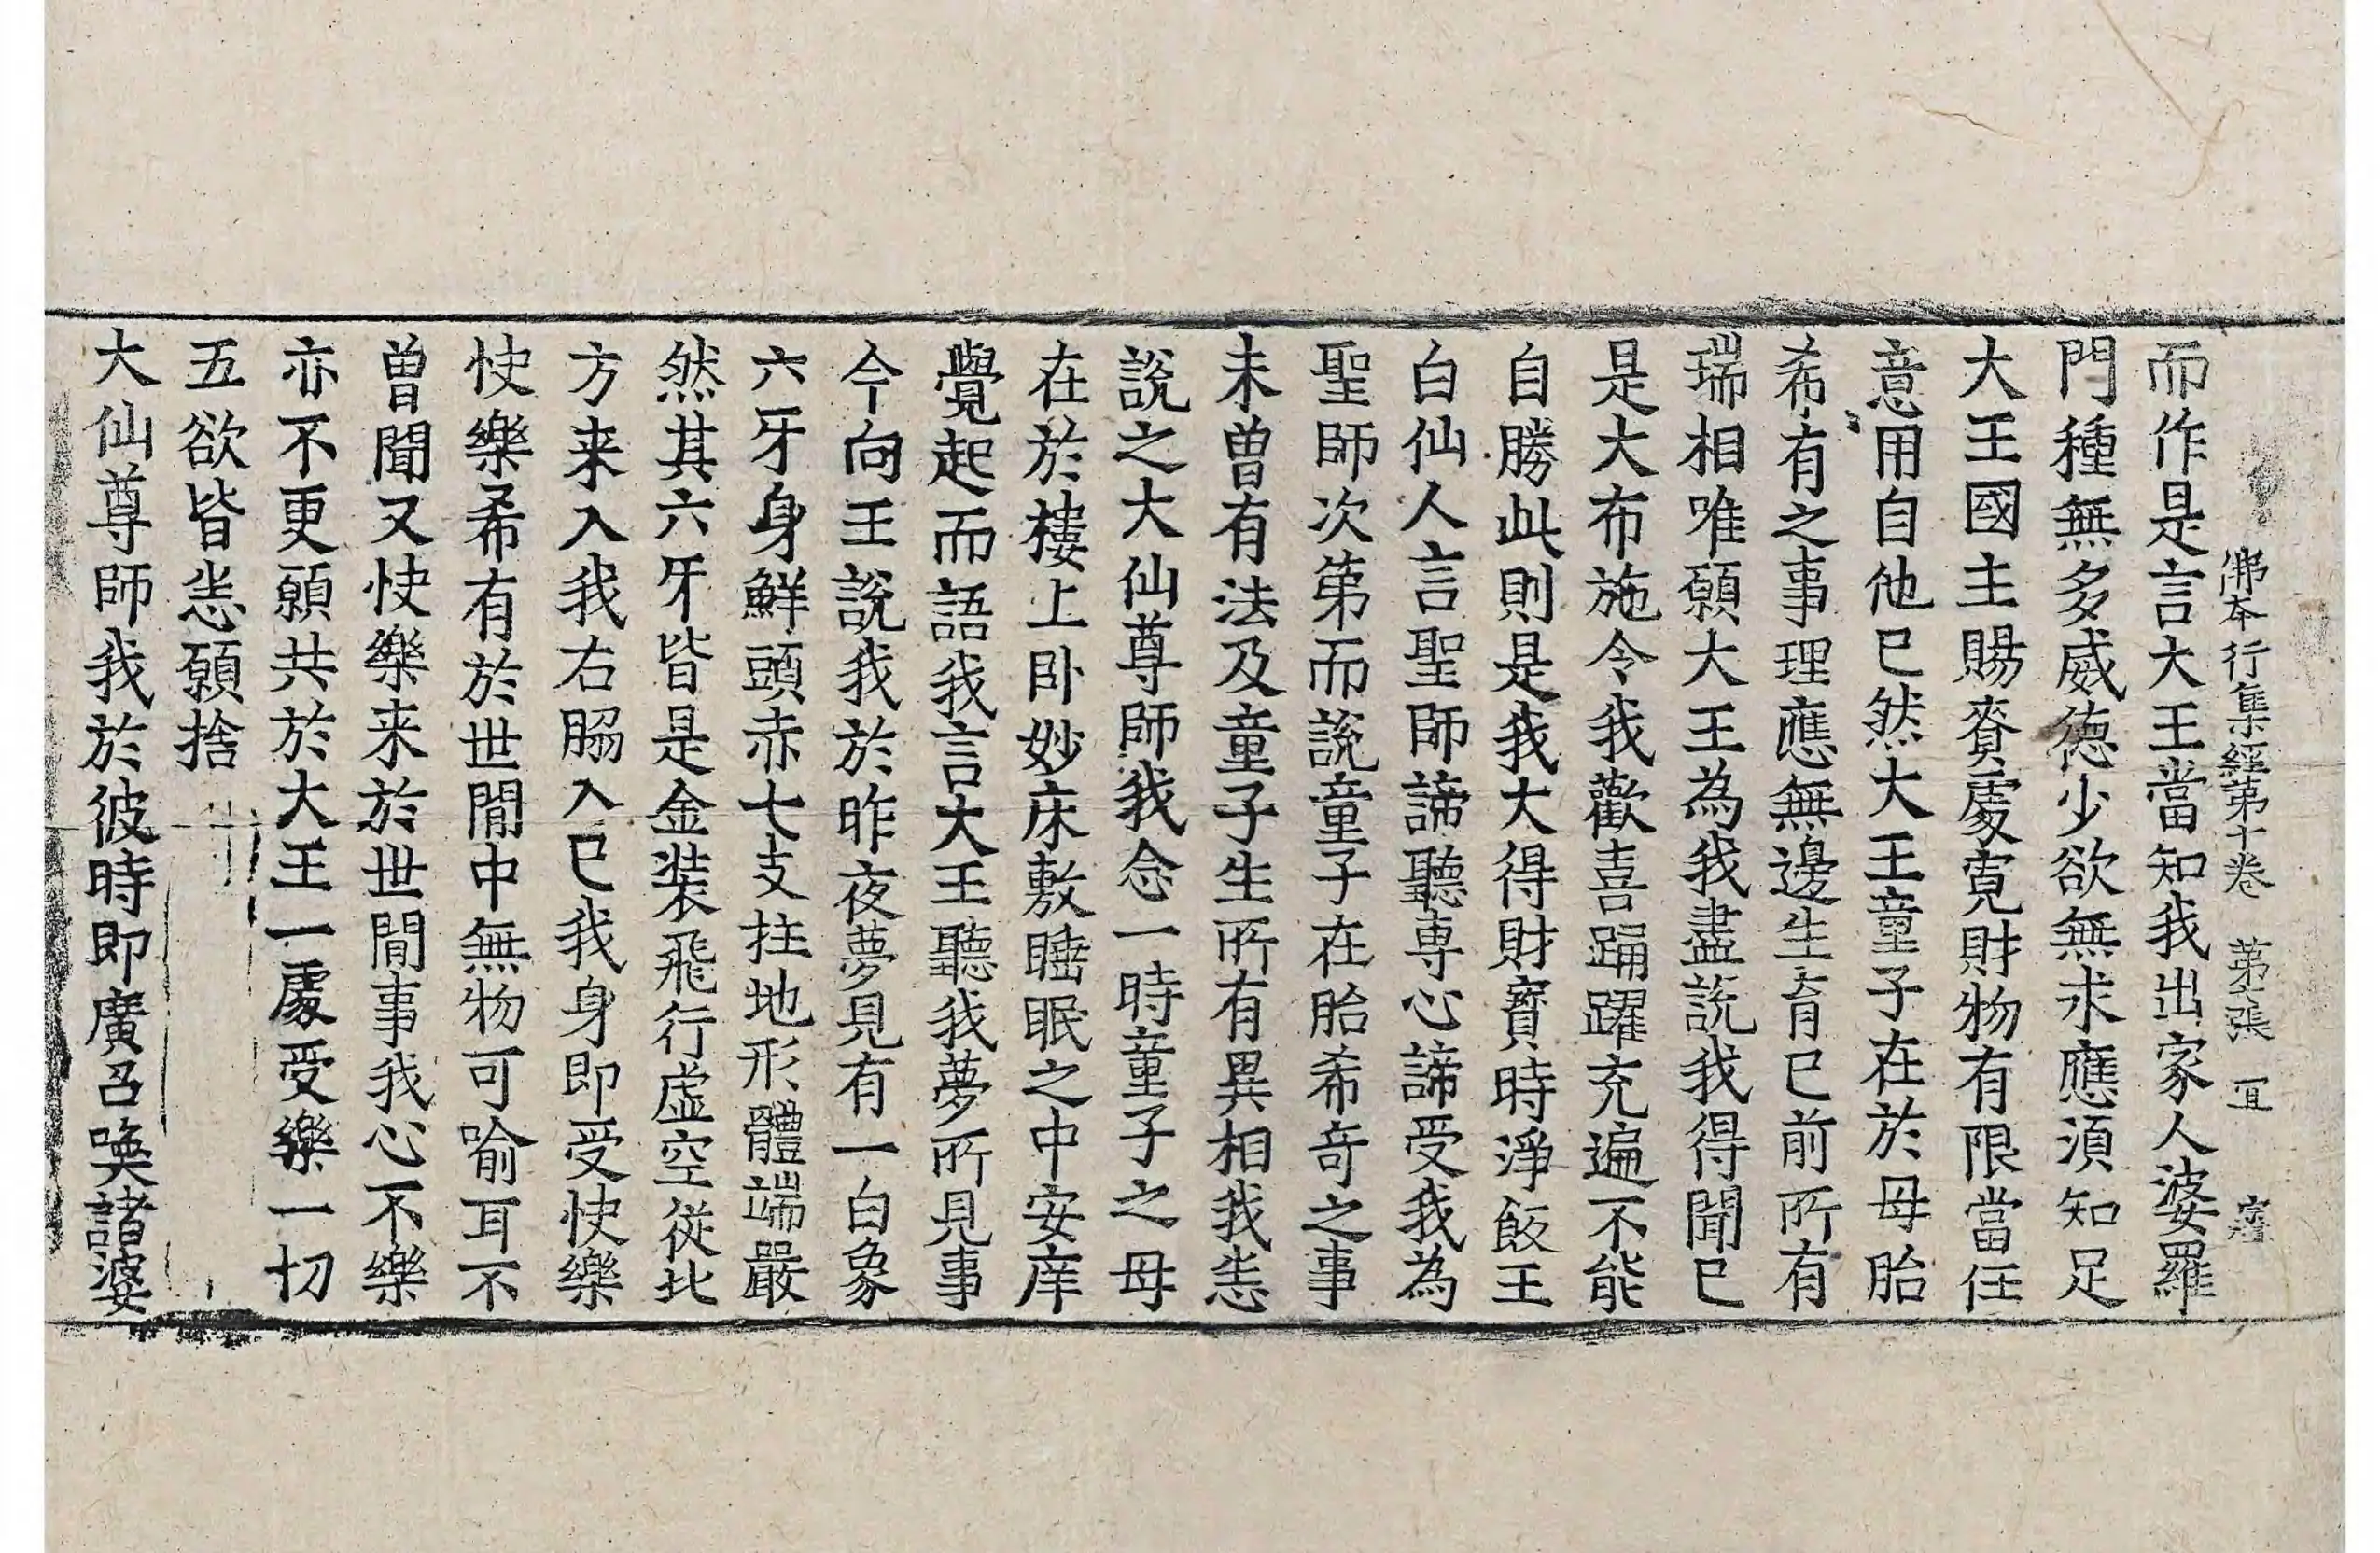 佛本行集經第十卷 第張 宜
而作是言大王當知我出家人婆羅
門種無多威德少欲無求應須知足
大王國主賜賚處寬財物有限當任
意用自他已然大王童子在於母胎
希有之事理應無邊生育已前所有
瑞相唯願大王為我盡說我得聞已
是大布施令我歡喜踊躍充遍不能
自勝此則是我大得財寶時淨飯王
白仙人言聖師諦聽專心諦受我為
聖師次第而說童子在胎希奇之事
未曾有法及童子生所有異相我悉
說之大仙尊師我念一時童子之母
在於樓上卧妙床敷睡眠之中安庠
覺起而語我言大王聽我夢所見事
今向王說我於昨夜夢見有一白象
六牙身鮮頭赤七支拄地形體端嚴
然其六牙皆是金裝飛行虛空從北
方来入我右脇入已我身即受快樂
快樂希有於世間中無物可喻耳不
曾聞又快樂来於世間事我心不樂
亦不更願共於大王一處受樂一切
五欲皆悉願捨
大仙尊師我於彼時即廣召喚諸婆